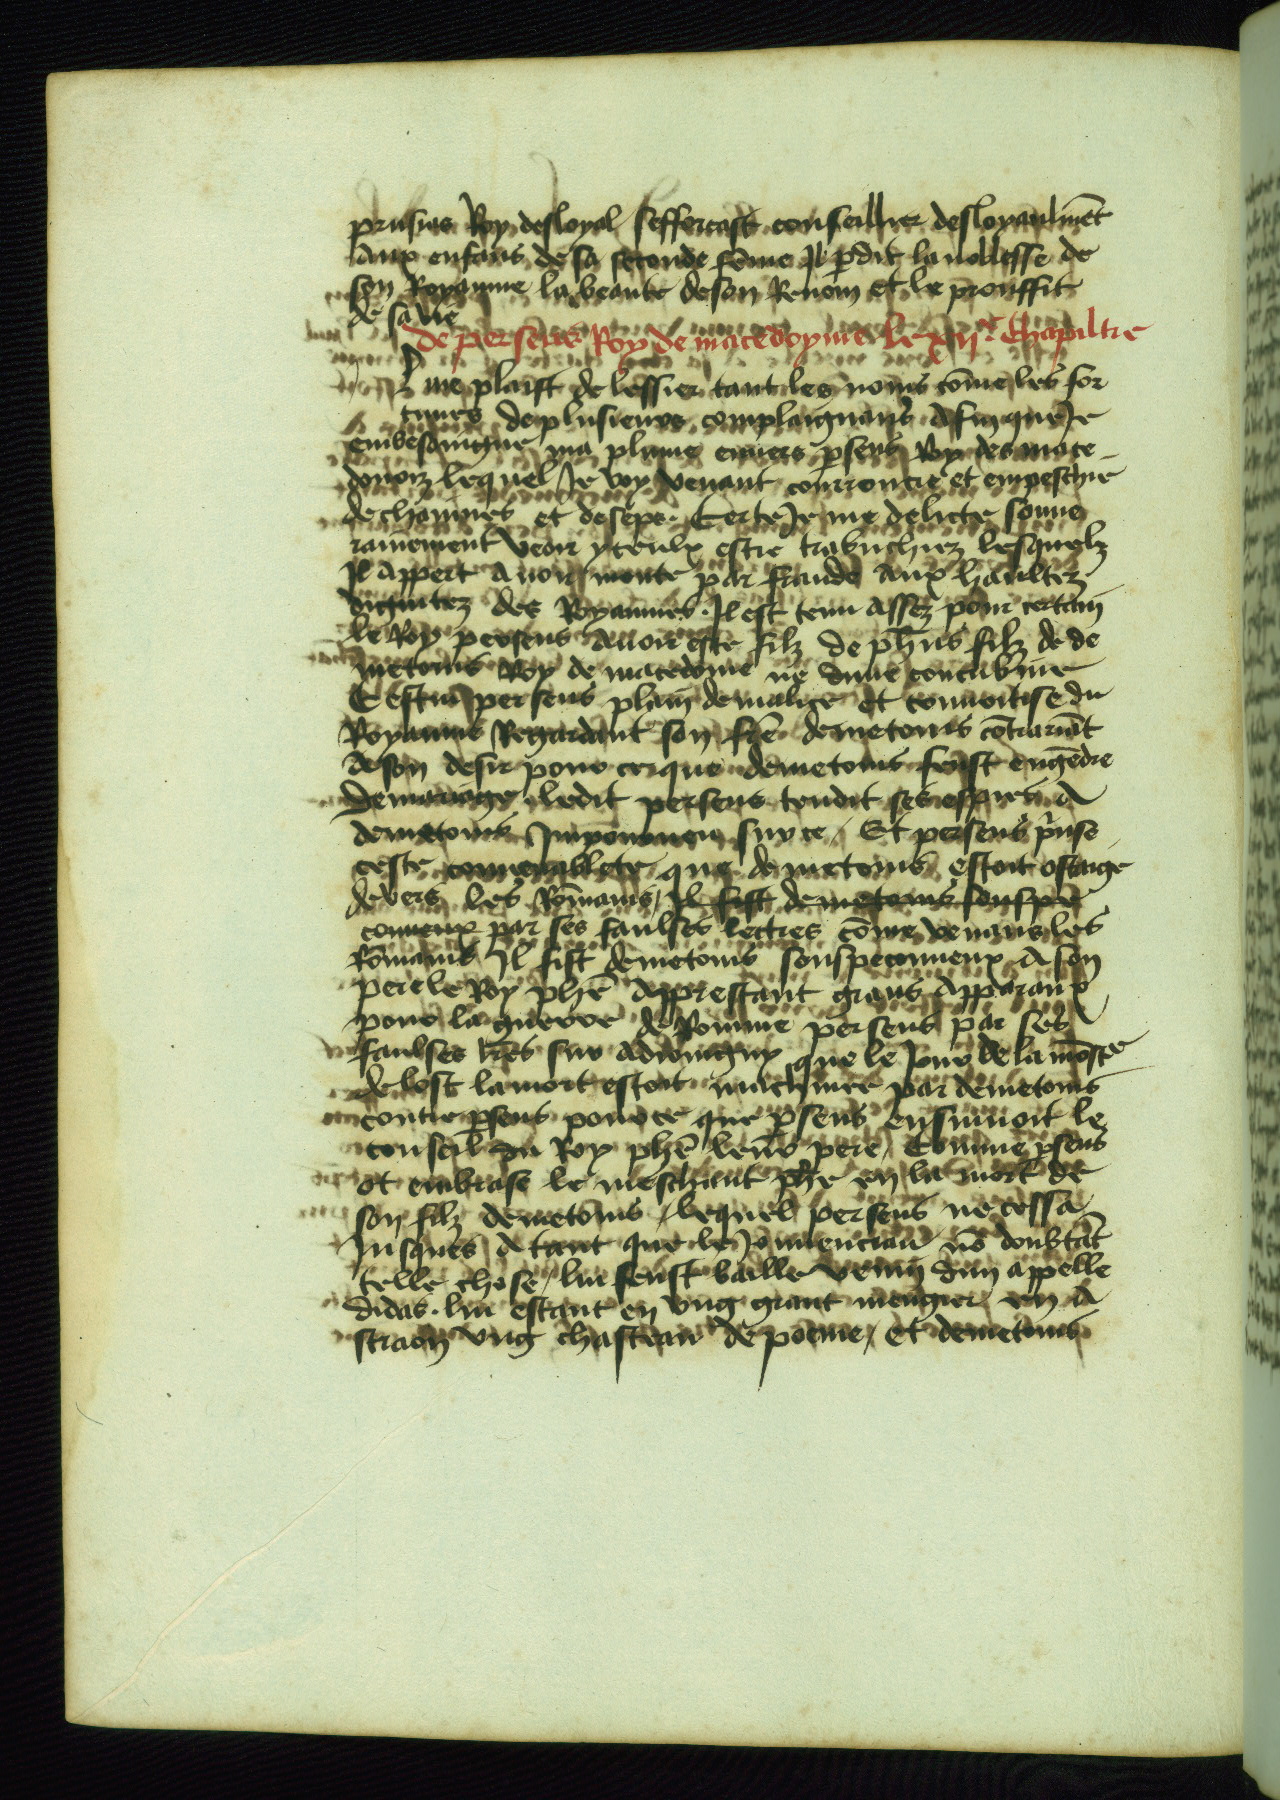 prusias Roy desloyal seffercast conseillier desloyaulmēt
aux enfans de sa seconde fēme Il pdit la noblesse de
son Royaume la beaute de son Renom et le prouffit
de sa vie
de perseus Roy de macedoyne le xiie chapiltre
me plaist de lessier tant les noms cōme les for
tunes de plusieurs complaignans Afin que Je
embesoingne ma plume enuers pseus Roy des mace
donois lequel Je voy venant courroucie et empeschie
de chaines et de seps. Certe Je me delicte souue
rainement veoir yceulx estre trabuchiez lesquelz
Il appert auoir monte par fraude aux haultez
dignitez des Royaumes. Il est tenu assez pour certain
le Roy perseus auoir este filz de phūs filz de de
metrius Roy de macedoine ne dune concubine
Cestui perseus plain de malice et conuoitise du
Royaume Regardant son frē demetrius cōtrariāt
A son desir pour ce que demetrius feust engēdre
de mariage ledit perseus tendit ses espies A
demetrius sur ce / Et perseus prinse
ceste conuenablete que demetrius estoit ostaige
deuers les Rōmains / Il fist demetrius souspe
conneux par ses faulses lectres cōme venans les
Rōmains Il fist demetrius souspeconneux A son
pere le Roy phē Apprestant grans Apparaux
pour la guerre de Romme perseus par ses
faulses lrēs sur que le Jour de la mōstre
de lost la mort estoit machinee par demetrius
contre pseus pour ce que pseus ensuiuoit le
conseil du Roy phē leur pere / Comme pseus
ot embrase le meschant phē en la mort de
son filz demetrius / lequel perseus ne cessa
Jusques A tant que le Jouuenciau nō doubtāt
telle chose / lui feust baille venin dun appelle
didas. lui estant en vng grant mengier en A
straon vng chasteau de poeme / et demetrius